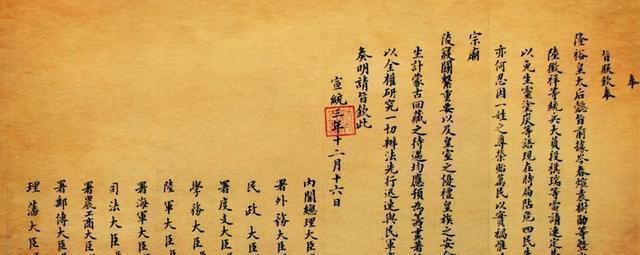 奉
旨朕欽奉
隆裕皇太后懿旨前據岑春煊袁樹勛等暨
陸徵祥等統兵大員段祺瑞等電請速定
以免生靈塗炭等語現在時局阽危四民
亦何忍因一姓之尊榮貽萬民以實禍惟
宗廟
陵寢關繫重要以及皇室之優禮皇族之安
生計蒙古回藏之待遇均應預為籌畫著
以全權研究一切辦法先行迅速與民軍
奏明請旨欽此
宣統三年十二月十六日
內閣總理大臣
署外務大臣
民政大臣
署度支大臣
學務大臣
陸軍大臣
署海軍大臣
司法大臣
署農工商大臣
署郵傳大臣
理藩大臣